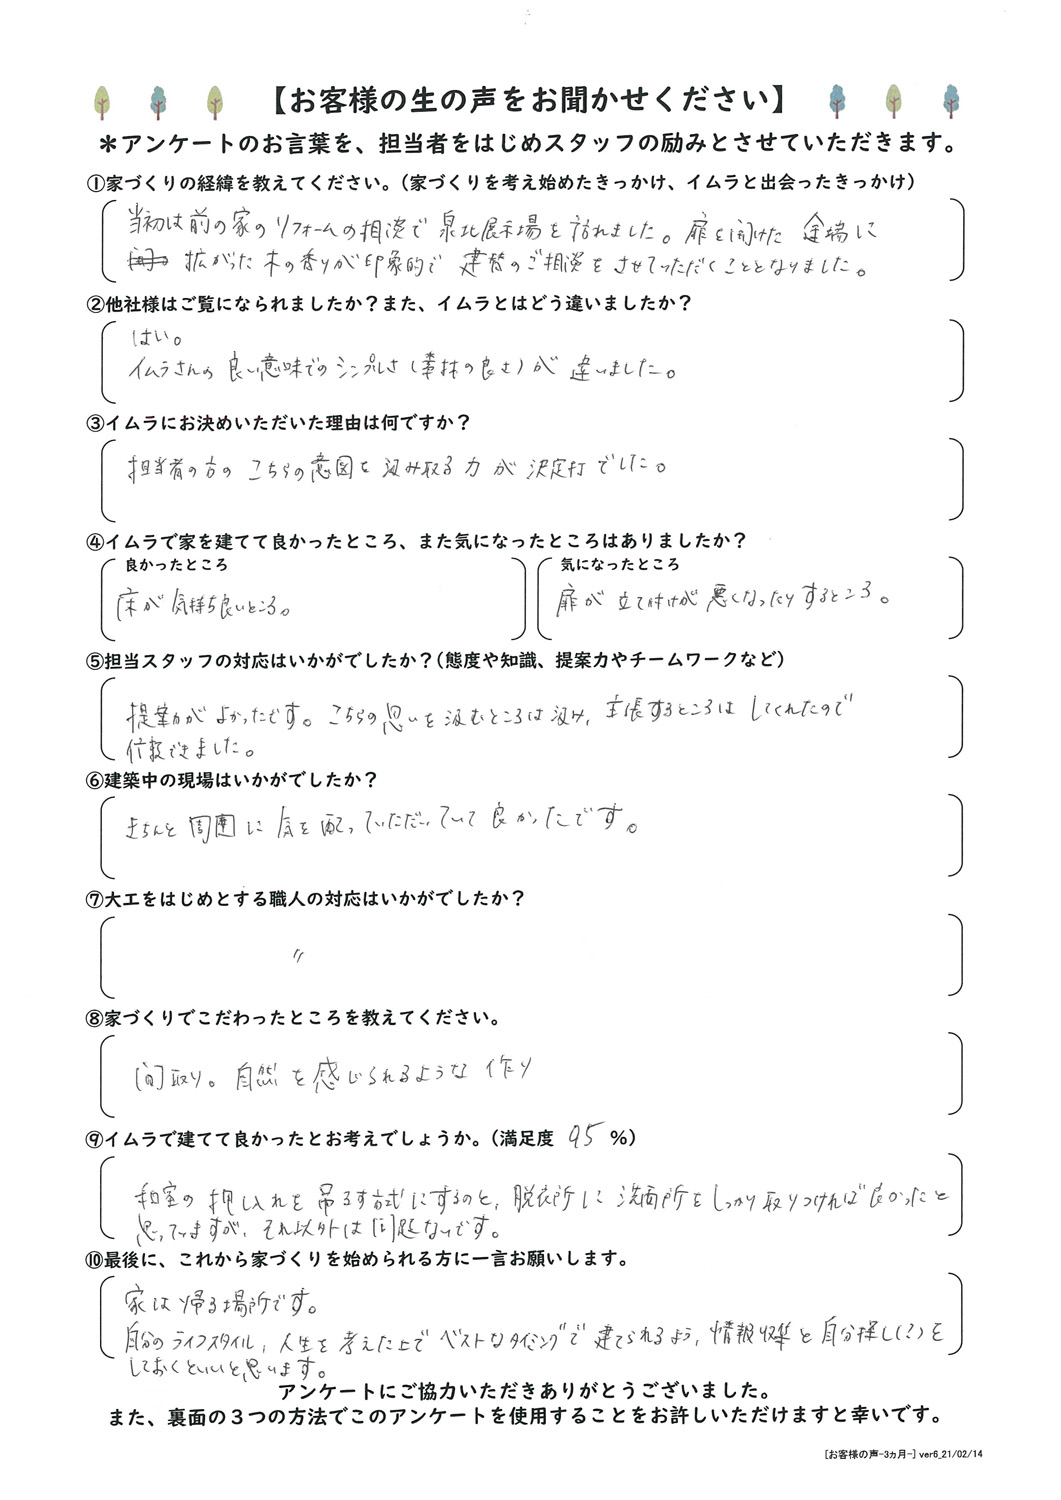 【お客様の生の声をお聞かせください】
＊アンケートのお言葉を、担当者をはじめスタッフの励みとさせていただきます。
①家づくりの経緯を教えてください。（家づくりを考え始めたきっかけ、イムラと出会ったきっかけ）
当初は前の家のリフォームの相談で泉北展示場を訪れました。扉を開けた途端に
拡がった木の香りが印象的で建替のご相談をさせていただくこととなりました。
②他社様はご覧になられましたか？また、イムラとはどう違いましたか？
はい。
イムラさんの良い意味でのシンプルさ（素材の良さ）が違いました。
③イムラにお決めいただいた理由は何ですか？
担当者の方のこちらの意図を汲み取る力が決定打でした。
④イムラで家を建てて良かったところ、また気になったところはありましたか？
良かったところ
気になったところ
床が気持ち良いところ。
扉が立て付けが悪くなったりするところ。
⑤担当スタッフの対応はいかがでしたか？（態度や知識、提案力やチームワークなど）
提案力がよかったです。こちらの思いを汲むところは汲み、主張するところはしてくれたので
信頼できました。
⑥建築中の現場はいかがでしたか？
きちんと周囲に気を配っていただいていて良かったです。
⑦大工をはじめとする職人の対応はいかがでしたか？
〃
⑧家づくりでこだわったところを教えてください。
間取り。自然を感じられるような作り
⑨イムラで建てて良かったとお考えでしょうか。（満足度 95 %）
和室の押し入れを吊るす方式にするのと、脱衣所に洗面所をしっかり取りつければ良かったと
思っていますが、それ以外は問題ないです。
⑩最後に、これから家づくりを始められる方に一言お願いします。
家は帰る場所です。
自分のライフスタイル、人生を考えた上でベストなタイミングで建てられるよう、情報収集と自分探し(?)を
しておくといいと思います。
アンケートにご協力いただきありがとうございました。
また、裏面の３つの方法でこのアンケートを使用することをお許しいただけますと幸いです。
[お客様の声-3ヵ月-] ver6_21/02/14